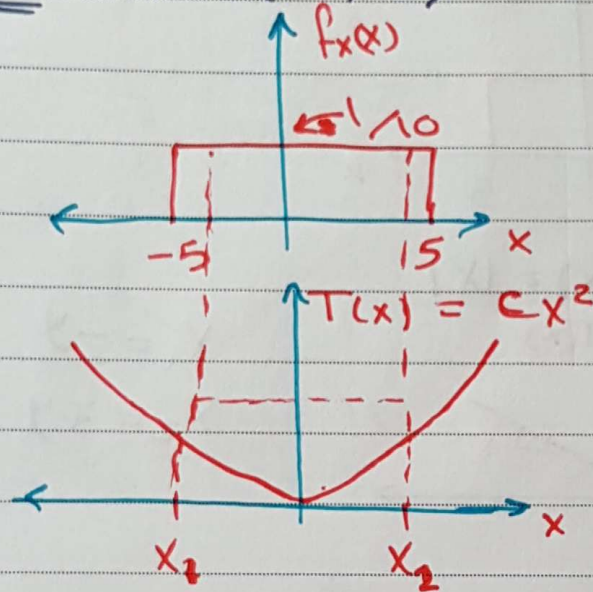 fx(x)
1/10
-5 5 x
T(x) = Cx²
x
x₁ x₂